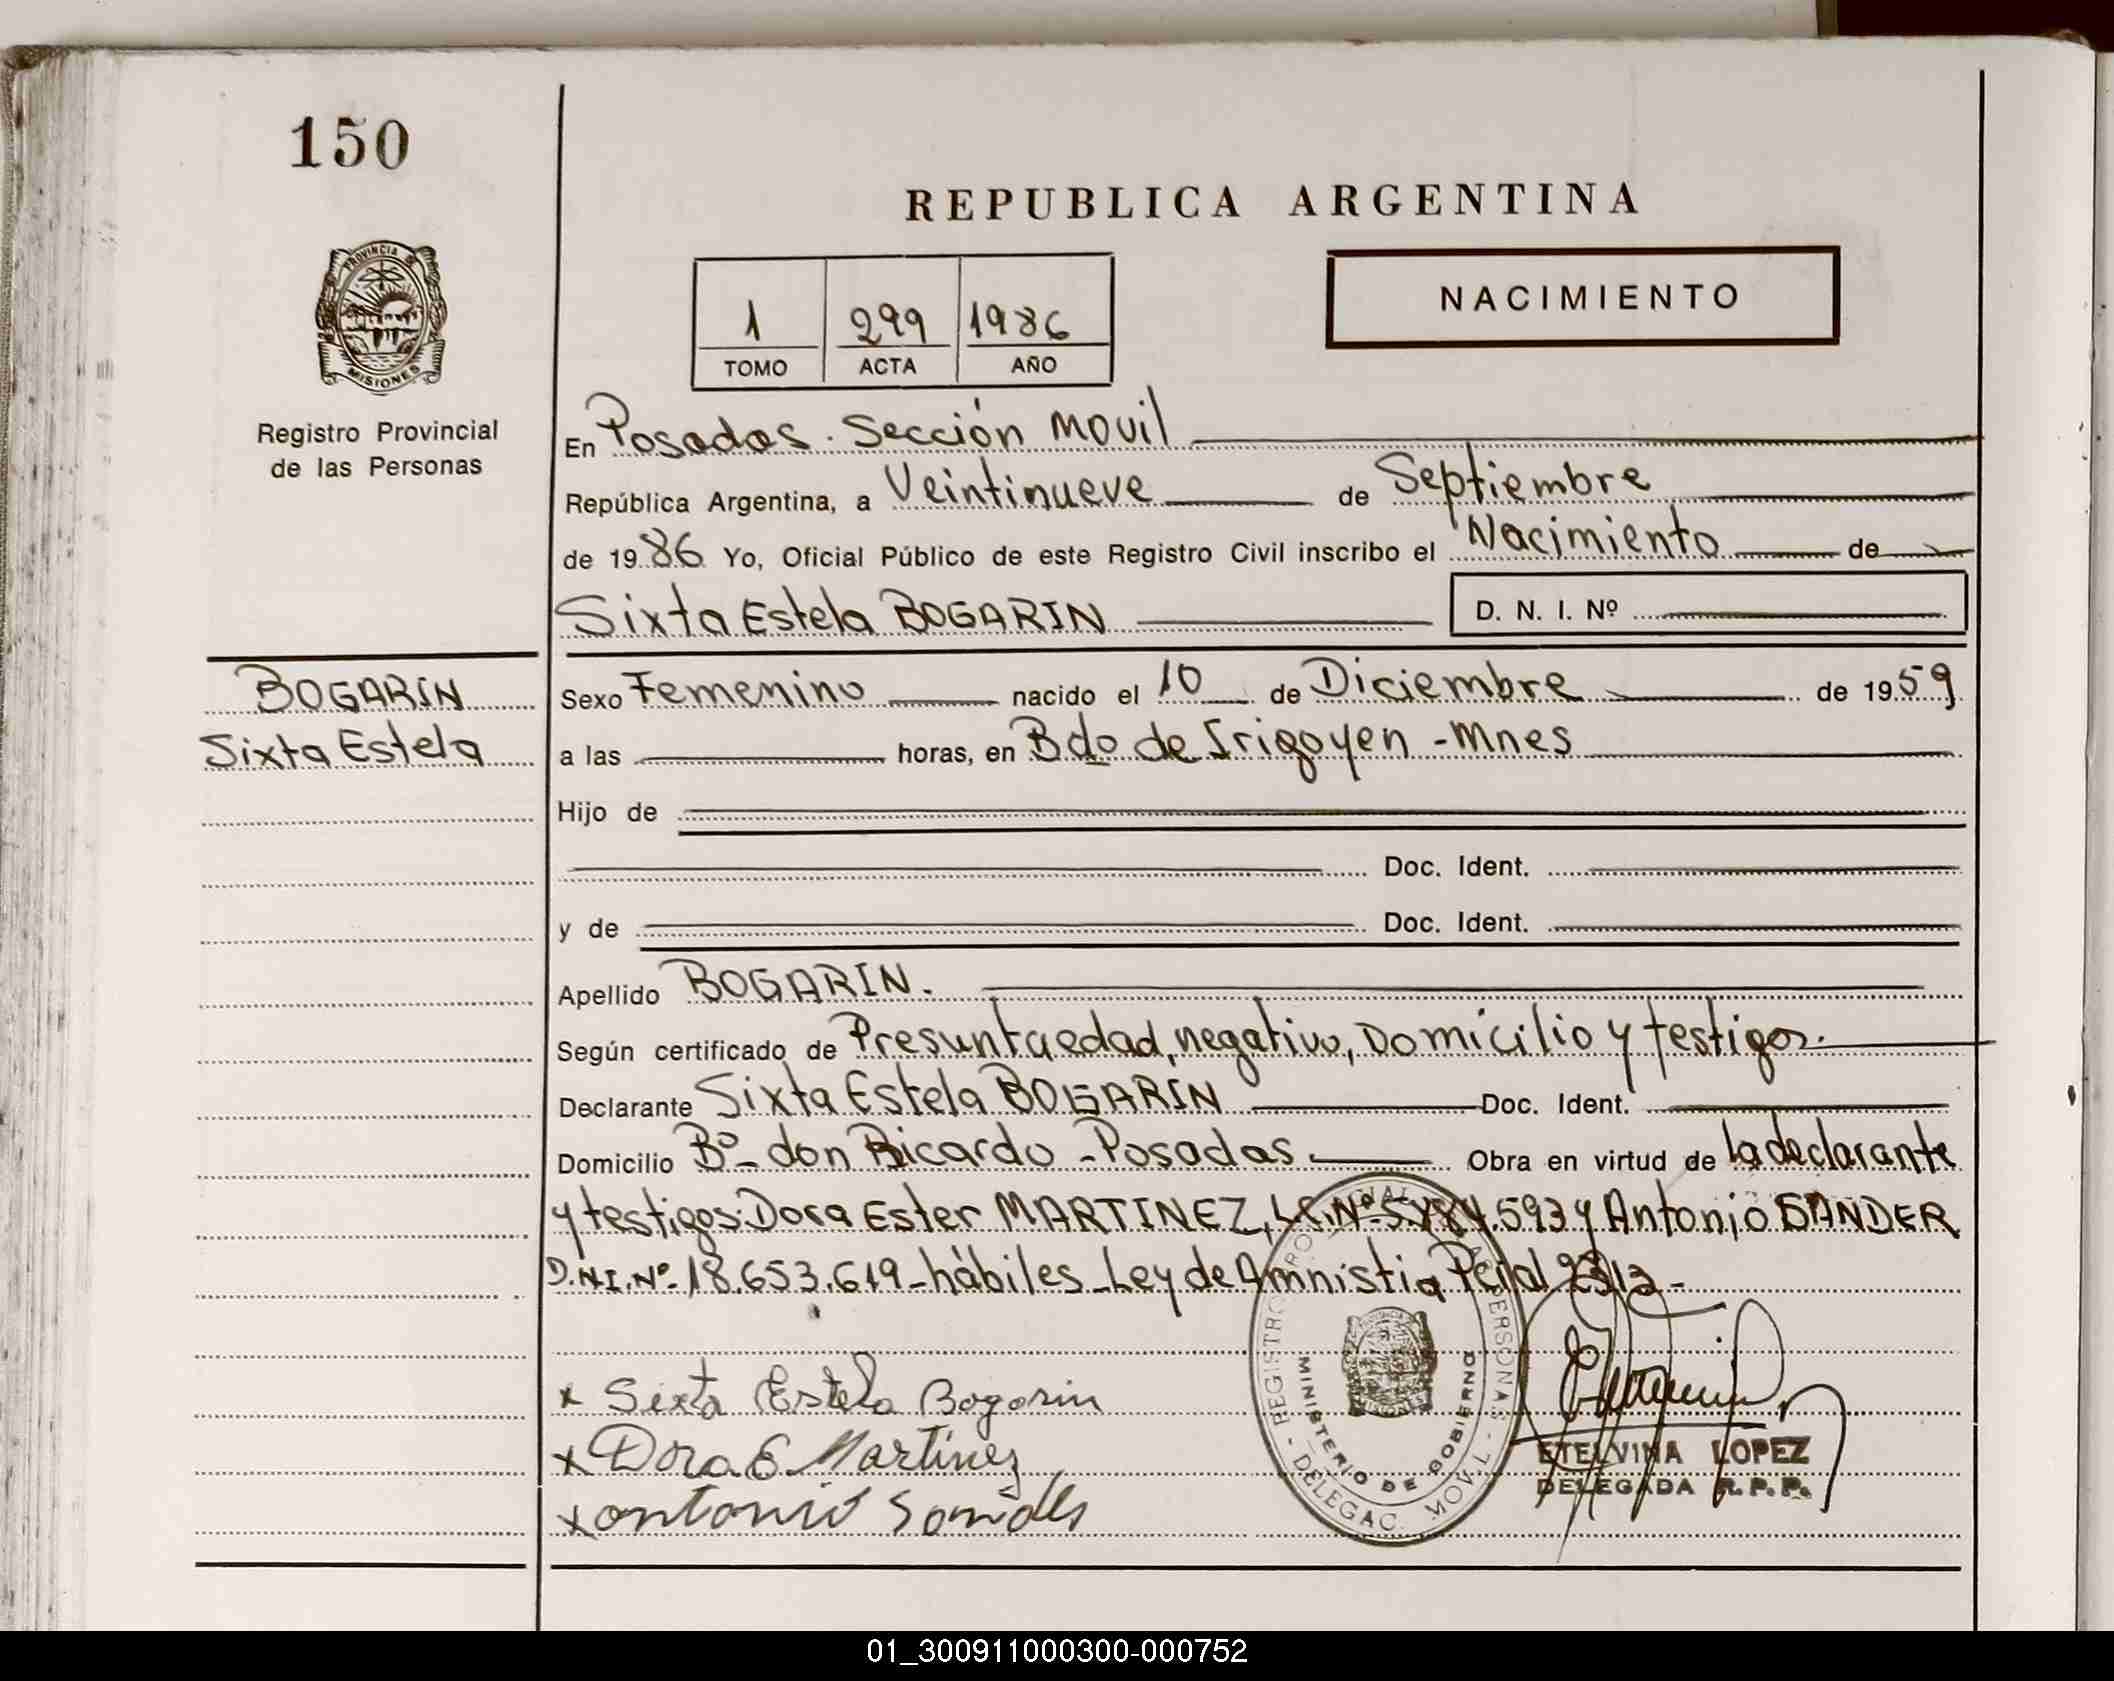 150
REPUBLICA ARGENTINA
PROVINCIA DE
MISIONES
Registro Provincial
de las Personas
1 299 1986
TOMO ACTA AÑO
NACIMIENTO
En Posadas. Sección Movil
República Argentina, a Veintinueve de Septiembre
de 1986 Yo, Oficial Público de este Registro Civil inscribo el Nacimiento de
Sixta Estela BOGARIN D. N. I. Nº
BOGARIN
Sixta Estela
Sexo Femenino nacido el 10 de Diciembre de 1959
a las horas, en Bdo de Irigoyen - Mnes
Hijo de
Doc. Ident.
y de Doc. Ident.
Apellido BOGARIN.
Según certificado de Presunta edad, negativo, Domicilio y testigos.
Declarante Sixta Estela BOGARIN Doc. Ident.
Domicilio Bº- don Ricardo - Posadas Obra en virtud de la declarante
y testigos: Dora Ester MARTINEZ, L.C.Nº 593 y Antonio SANDER
D.N.I.Nº 18.653.619 - hábiles - Ley de Amnistia
x Sixta Estela Bogarin
x Dora E Martinez
x antonio
REGISTRO PERSONAS - DELEGAC. MOVIL -
MINISTERIO DE GOBIERNO
ETELVINA LOPEZ
DELEGADA R.P.P.
01_300911000300-000752